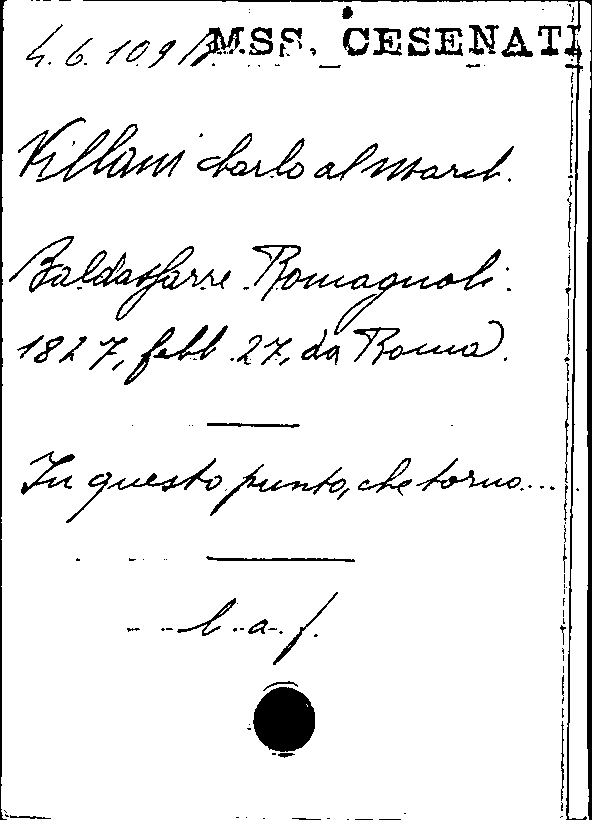 4.6.109 MSS. CESENATI
Villani Carlo al March.
Baldassarre Romagnoli.
1827, febb. 27, da Roma.
In questo punto, che torno...
l. a. f.